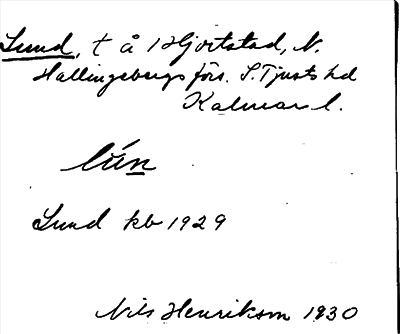 Lund, t å 1 Hjortstad, N.
Hallingebergs förs. S. Tjusts hd
Kalmar l.
lún
Lund kb 1929
Nils Henrikson 1930